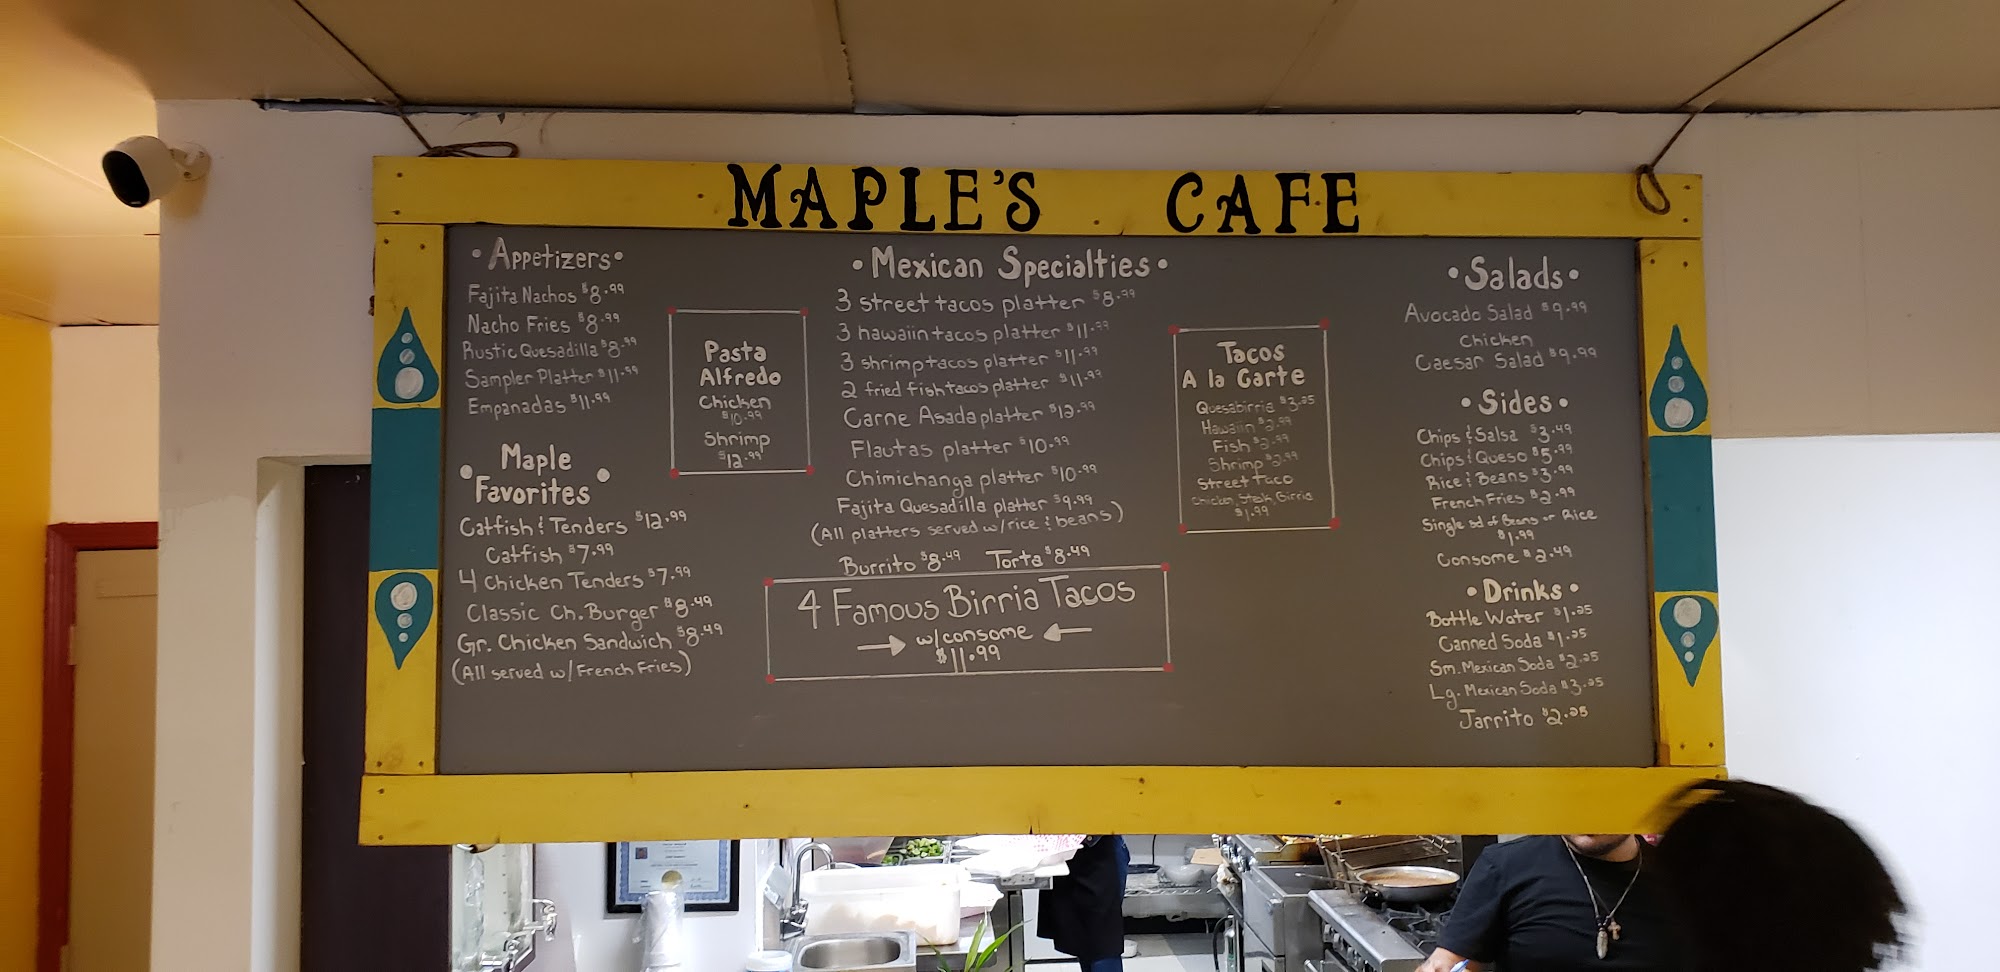 MAPLE'S CAFE
•Appetizers•
Fajita Nachos $8.99
Nacho Fries $8.99
Rustic Quesadilla $8.99
Sampler Platter $11.99
Empanadas $11.99
•Maple
Favorites•
Catfish & Tenders $12.99
Catfish $7.99
4 Chicken Tenders $7.99
Classic Ch. Burger $8.49
Gr. Chicken Sandwich $8.49
(All served w/French Fries)
Pasta
Alfredo
Chicken
$10.99
Shrimp
$12.99
•Mexican Specialties•
3 street tacos platter $8.99
3 hawaiin tacos platter $11.99
3 shrimp tacos platter $11.99
2 fried fish tacos platter $11.99
Carne Asada platter $12.99
Flautas platter $10.99
Chimichanga platter $10.99
Fajita Quesadilla platter $9.99
(All platters served w/rice & beans)
Burrito $8.49 Torta $8.49
4 Famous Birria Tacos
w/consome
$11.99
Tacos
A la Carte
Quesabirria $3.25
Hawaiin $2.99
Fish $2.99
Shrimp $2.99
Street Taco
Chicken, Steak, Birria
$1.99
•Salads•
Avocado Salad $9.99
Chicken
Caesar Salad $9.99
•Sides•
Chips & Salsa $3.49
Chips & Queso $5.99
Rice & Beans $3.99
French Fries $2.99
Single sd of Beans or Rice
$1.99
Consome $2.49
•Drinks•
Bottle Water $1.25
Canned Soda $1.25
Sm. Mexican Soda $2.25
Lg. Mexican Soda $3.25
Jarrito $2.25